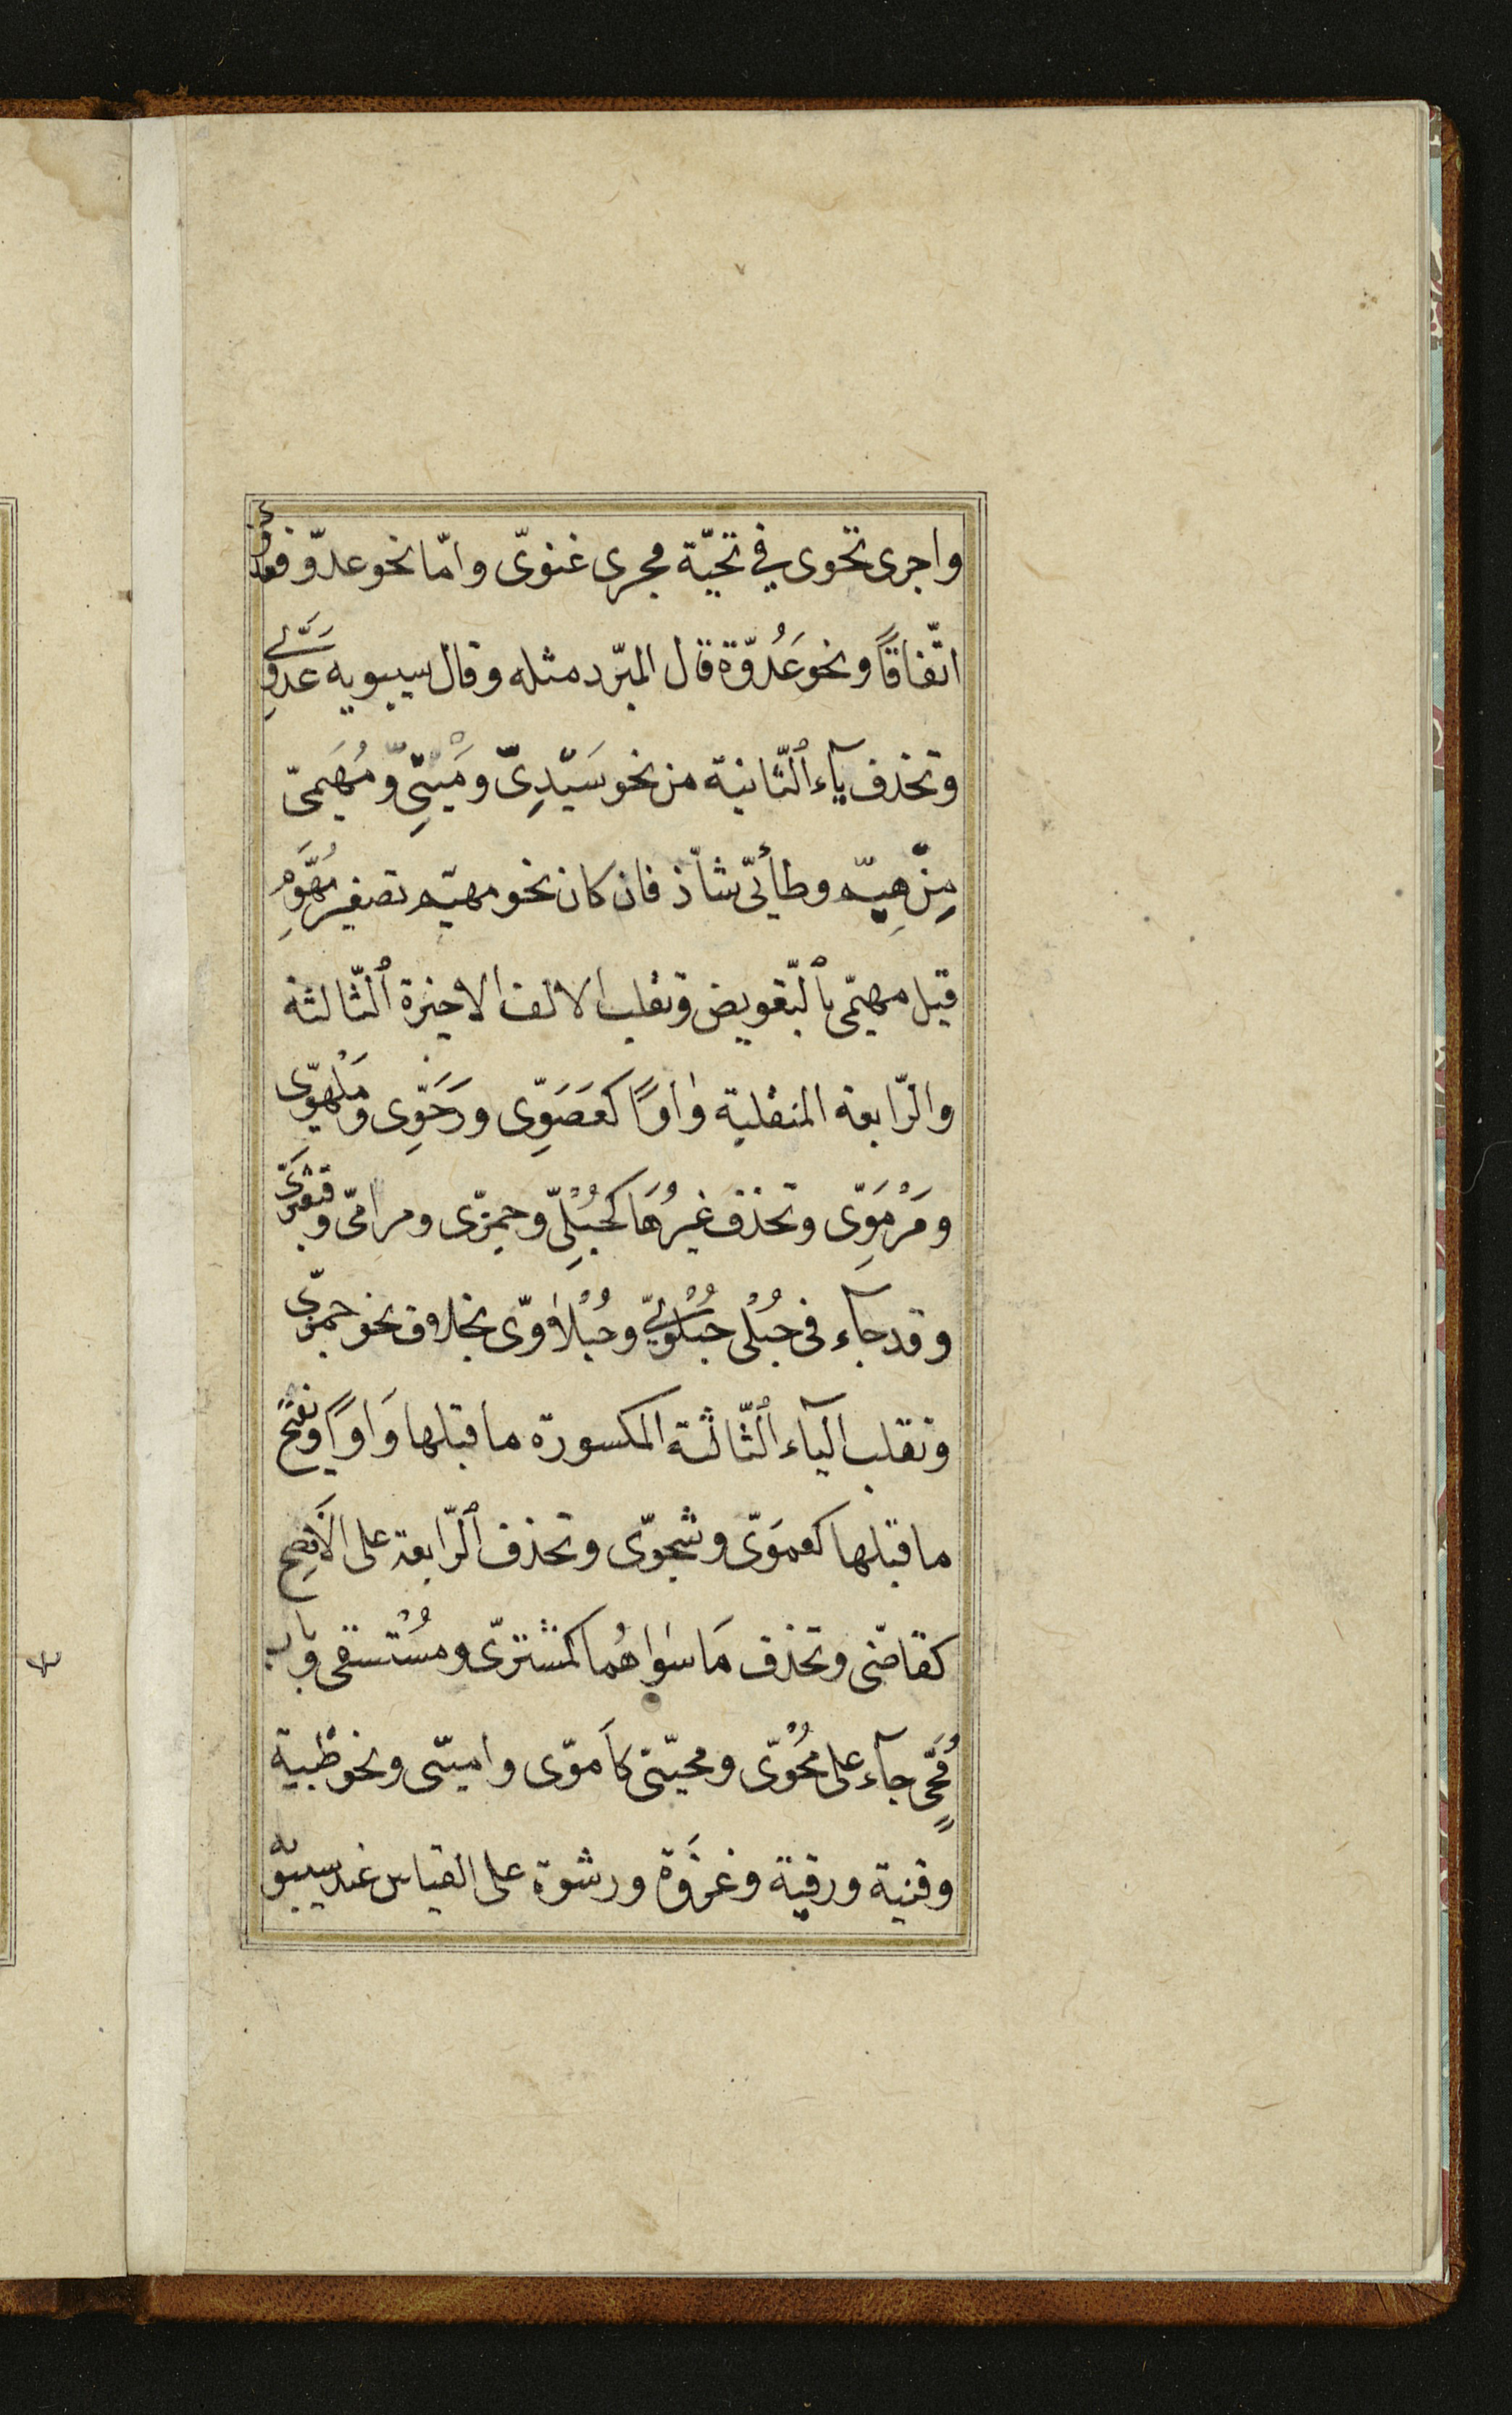 واجرى تحوى في تحيّة مجرى غنوىّ وامّا نحو عدوّ فعدوىّ
اتّفاقًا ونحو عَدُوّة قال المبرّد مثله وقال سيبويه عَدَوِىّ
وتحذف يآء ٱلثّانية من نحو سَيّدِىّ ومَيْتِىّ ومُهَيمىّ
مِنْ هِيّم وطأىّ شاذّ فان كان نحو مهيّم تصغير مُهَوِّم
قيل مهيّمى بٱلتّعويض وتقلب الالف الاخيرة ٱلثّالثة
والرّابعة المنقلبة واوًا كعَصَوِّى ورَحَوِّى ومَلْهَوِّى
ومَرْمَوِّى وتحذف غيرُهَا كحُبْلِىّ وجمزّى ومرامّى وقبعثرَىّ
وقد جآء فى حُبْلى حُبْلَوِىّ وحُبْلاوىّ بخلاف نحو جمزّى
وتقلب اليآء ٱلثّالثة المكسورة ما قبلها وَاوًا وتفتح
ما قبلها كعمَوىّ وشجوىّ وتحذف ٱلرّابعة على الأفصح
كقاضّى وتحذف مَا سواهُما كمشترىّ ومُسْتسقى وباب
مُحَىٍّ جآء على مُحَوْىّ ومحيّىّ كأموّى واميىّى ونحو ظَبية
وقنية ورقية وغزوَة ورشوة على القياس عند سيبويه